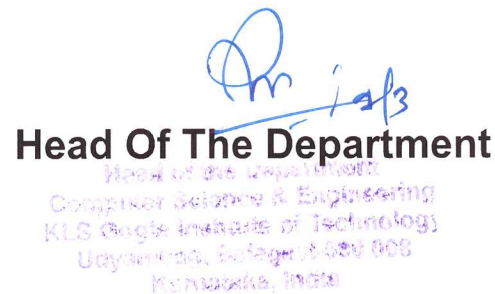 Head Of The Department
Head of the Department
Computer Science & Engineering
KLS Gogte Institute of Technology
Udyambag, Belagavi-590 008
Karnataka, India